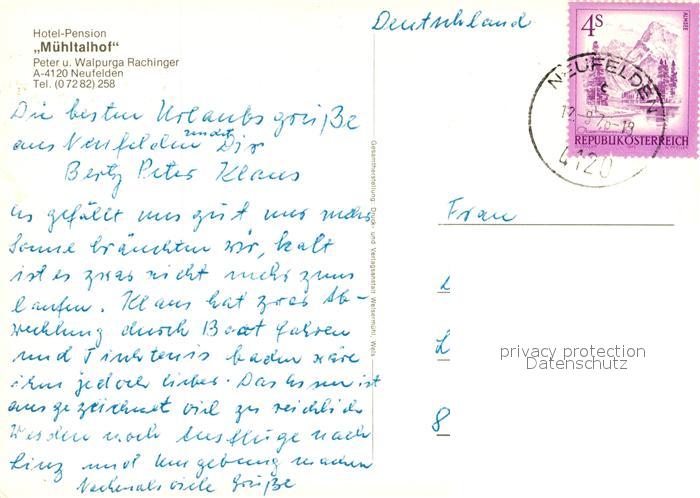 Hotel-Pension
„Mühltalhof“
Peter u. Walpurga Rachinger
A-4120 Neufelden
Tel. (0 72 82) 258
Die besten Urlaubsgrüße
aus Neufelden Dir
Berty Peter Klaus
es gefällt uns gut nur mehr
Sonne bräuchten wir, kalt
ist es zwar nicht mehr zum
laufen. Klaus hat zwar Ab-
wechlung durch Boot fahren
und Tischtenis baden wäre
ihm jedoch lieber. Das Essen ist
ausgezeichnet viel zu reichlich
Werden noch Ausflüge nach
Linz und Umgebung machen
Nochmals viele Grüße
Gesamtherstellung: Druck- und Verlagsanstalt Welsermühl, Wels
Deutschland
4S
ALMSEE
REPUBLIK ÖSTERREICH
NEUFELDEN
4120
Frau
L
L
8
privacy protection
Datenschutz